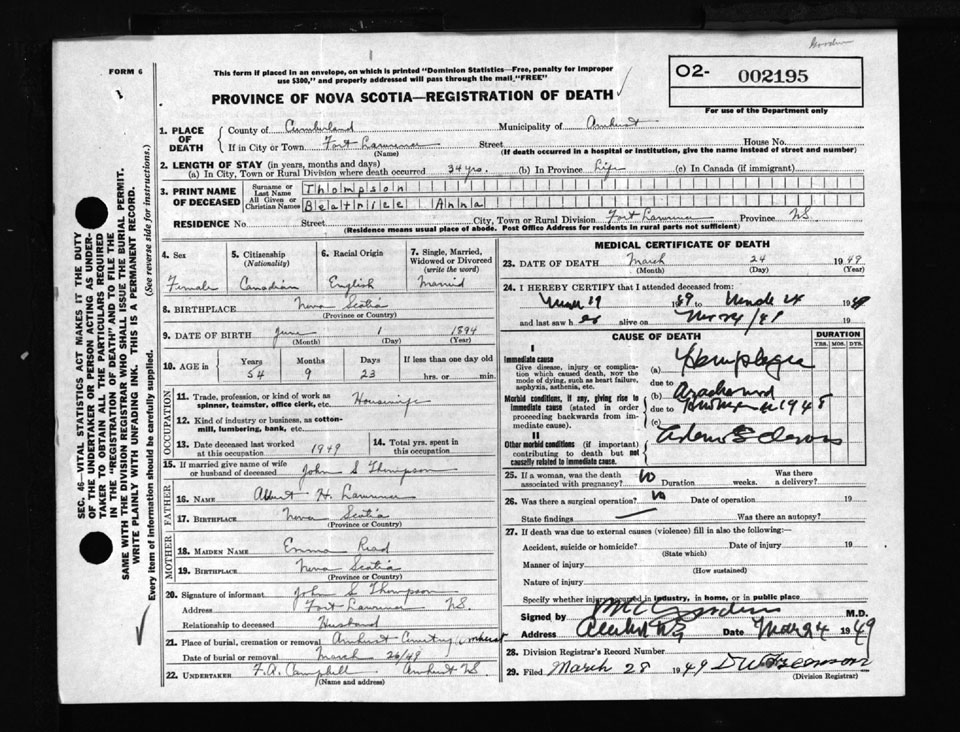 Gooden
FORM 6
This form if placed in an envelope, on which is printed "Dominion Statistics—Free, penalty for improper
use $300," and properly addressed will pass through the mail "FREE"
PROVINCE OF NOVA SCOTIA—REGISTRATION OF DEATH
O2- 002195
For use of the Department only
SEC. 46—VITAL STATISTICS ACT MAKES IT THE DUTY
OF THE UNDERTAKER OR PERSON ACTING AS UNDER-
TAKER TO OBTAIN ALL THE PARTICULARS REQUIRED
IN THE "REGISTRATION OF DEATH" AND TO FILE THE
SAME WITH THE DIVISION REGISTRAR WHO SHALL ISSUE THE BURIAL PERMIT.
WRITE PLAINLY WITH UNFADING INK. THIS IS A PERMANENT RECORD.
Every item of information should be carefully supplied. (See reverse side for instructions.)
1. PLACE OF DEATH
County of Cumberland Municipality of Amherst
If in City or Town Fort Lawrence Street House No.
(Name) (If death occurred in a hospital or institution, give the name instead of street and number)
2. LENGTH OF STAY (in years, months and days)
(a) In City, Town or Rural Division where death occurred 34 yrs. (b) In Province Life (c) In Canada (if immigrant)
3. PRINT NAME OF DECEASED
Surname or Last Name Thompson
All Given or Christian Names Beatrice Anna
RESIDENCE No. Street City, Town or Rural Division Fort Lawrence Province N.S.
(Residence means usual place of abode. Post Office Address for residents in rural parts not sufficient)
4. Sex 5. Citizenship (Nationality) 6. Racial Origin 7. Single, Married, Widowed or Divorced (write the word)
Female Canadian English Married
8. BIRTHPLACE Nova Scotia
(Province or Country)
9. DATE OF BIRTH June 1 1894
(Month) (Day) (Year)
10. AGE in Years Months Days If less than one day old
54 9 23 hrs. or min.
OCCUPATION
11. Trade, profession, or kind of work as spinner, teamster, office clerk, etc. Housewife
12. Kind of industry or business, as cotton-mill, lumbering, bank, etc.
13. Date deceased last worked at this occupation 1949 14. Total yrs. spent in this occupation
15. If married give name of wife or husband of deceased John S Thompson
FATHER
16. NAME Albert H. Lawrence
17. BIRTHPLACE Nova Scotia
(Province or Country)
MOTHER
18. MAIDEN NAME Emma Read
19. BIRTHPLACE Nova Scotia
(Province or Country)
20. Signature of informant John S Thompson
Address Fort Lawrence N.S.
Relationship to deceased Husband
21. Place of burial, cremation or removal Amherst Cemetery Amherst
Date of burial or removal March 26/49
22. UNDERTAKER F.A. Campbell Amherst N.S.
(Name and address)
MEDICAL CERTIFICATE OF DEATH
23. DATE OF DEATH March 24 1949
(Month) (Day) (Year)
24. I HEREBY CERTIFY that I attended deceased from:
Mar 19 19 49 to March 24 1949
and last saw her alive on Mar 24/49 19
CAUSE OF DEATH DURATION
YRS. MOS. DYS.
I
Immediate cause
Give disease, injury or complication which caused death, NOT the mode of dying, such as heart failure, asphyxia, asthenia, etc.
(a) Hemiplegia
due to
Morbid conditions, if any, giving rise to immediate cause (stated in order proceeding backwards from immediate cause).
(b)
due to 1948
(c)
II
Other morbid conditions (if important) contributing to death but not causally related to immediate cause.
25. If a woman, was the death associated with pregnancy? No Duration weeks. Was there a delivery?
26. Was there a surgical operation? No Date of operation 19
State findings Was there an autopsy?
27. If death was due to external causes (violence) fill in also the following:—
Accident, suicide or homicide? Date of injury 19
(State which)
Manner of injury
(How sustained)
Nature of injury
Specify whether injury occurred in industry, in home, or in public place
Signed by M.D.
Address Amherst N.S. Date Mar 24 1949
28. Division Registrar's Record Number
29. Filed March 28 1949
(Division Registrar)